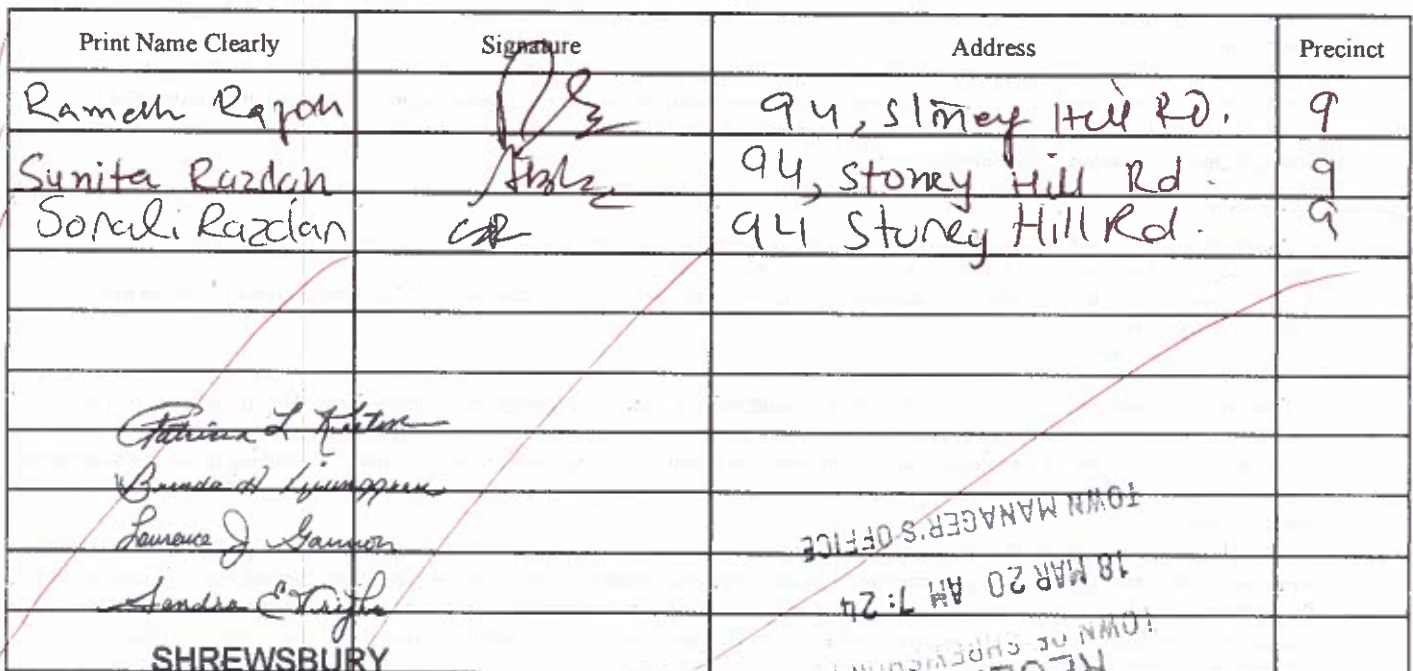 Print Name Clearly Signature Address Precinct
Ramesh 94, Stoney Hill RD. 9
Sunita Razdan 94, Stoney Hill Rd. 9
Sonali Razdan SR 94 Stoney Hill Rd. 9
Patricia L
Brenda H Ljunggren
Laurence J Gannon
Sandra E Wright
SHREWSBURY
TOWN MANAGER'S OFFICE
18 MAR 20 AM 7:24
TOWN OF SHREWSBURY